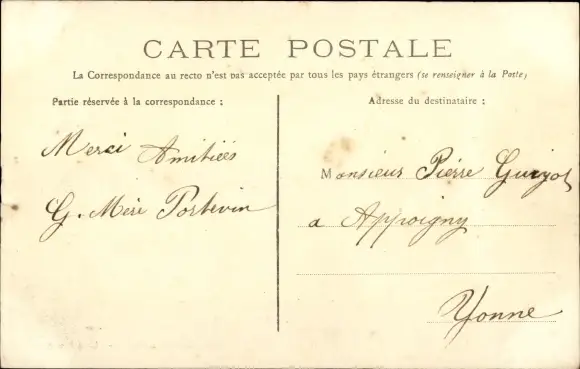 CARTE POSTALE
La Correspondance au recto n'est pas acceptée par tous les pays étrangers (se renseigner à la Poste)
Partie réservée à la correspondance :
Merci Amitiées
G. Mère Portevin
Adresse du destinataire :
Monsieur Pierre Guizot
a Appoigny
Yonne